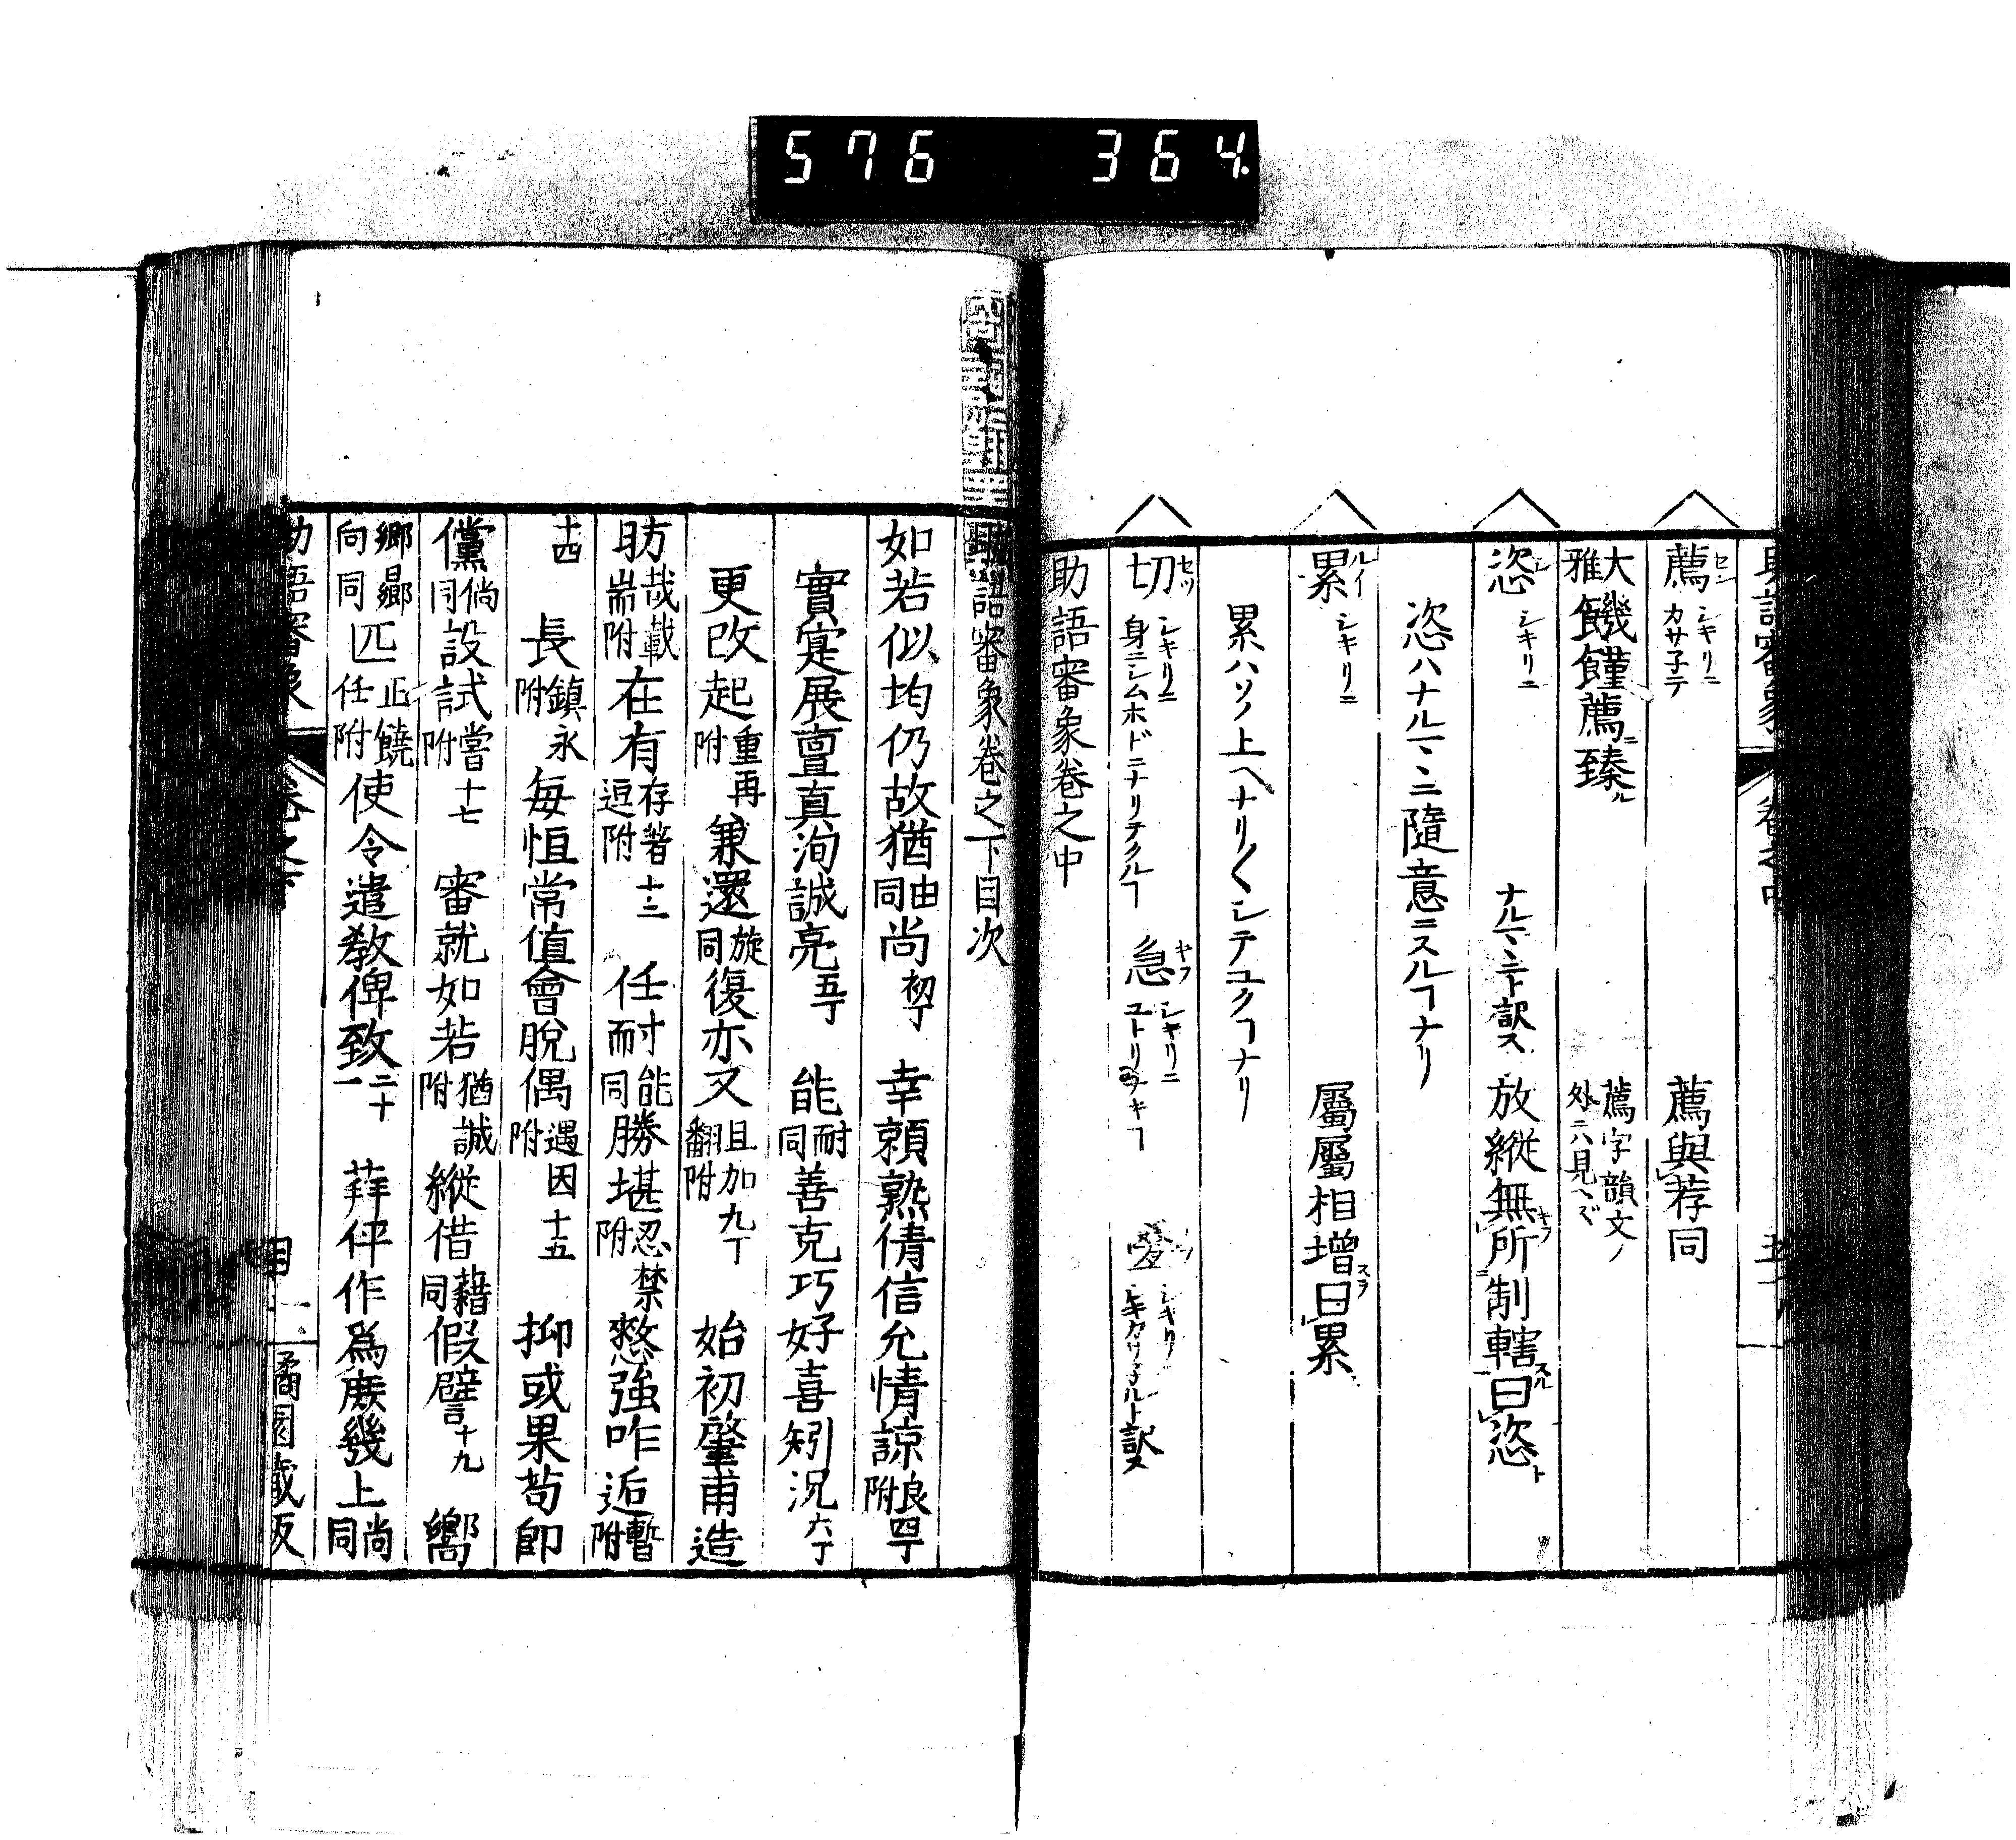 576 364.
薦 セン シキリニ カサネテ 薦與荐同
大雅饑饉薦ニ臻ル 薦字韻文ノ外ニハ見ヘズ
恣 シ シキリニ ナルヽニト訳ス 放縱無所制轄曰恣
恣ハナルヽニ隨意ニスルヿナリ
累 ルイ シキリニ 屬屬相增曰累
累ハソノ上ヘナリ〱シテユクヿナリ
切 セツ シキリニ 身ニシムホドニナリテクルヿ 急 キフ シキリニ ユトリナキヿ シキリ 訳ス
助語審象卷之中
助語審象卷之下目次
如若似均仍故猶由同尚初丁 幸賴熟倩信允情諒良附四丁
實寔展亶真洵誠亮五丁 能耐同善克巧好喜矧況六丁
更改起重再附兼還旋同復亦又且加翻附九丁 始初肇甫造
昉哉載耑附在有存著逗附十三 任耐能同勝堪忍禁附憖強咋近暫附
十四 長鎮永附每恒常值會脫偶遇因附十五 抑或果苟即
儻倘同設試嘗附十七 審就如若猶誠附縱借藉同假譬言十九 嚮
鄉曏鄉向同匹止饒任附使令遣教俾致二十一 拜伻作爲庶幾上尚同
助語審象 卷之下 目一 橘園藏板